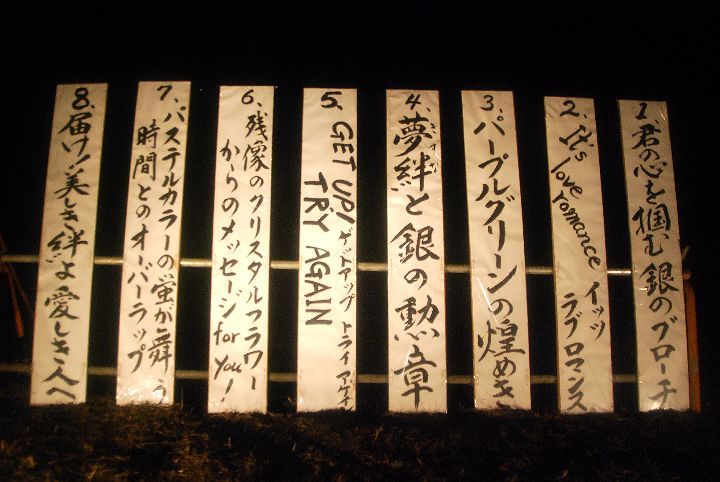 1.君の心を掴む銀のブローチ
2.It's love romance イッツ ラブロマンス
3.パープルグリーンの煌めき
4.夢絆と銀の勲章
きずな
5.GET UP! ゲットアップ トライ アゲイン
TRY AGAIN
6.残像のクリスタルフラワー
からのメッセージ for you!
7.パステルカラーの蛍が舞う
時間とのオーバーラップ
8.届け!美しき絆よ愛しき人へ